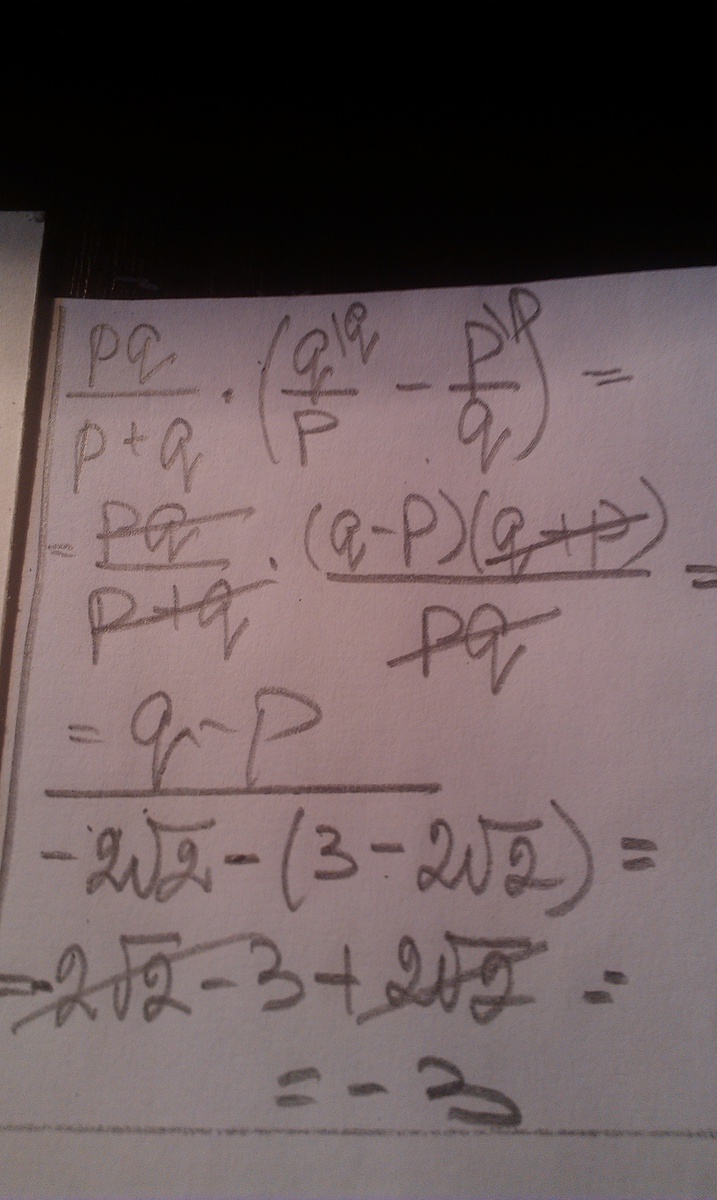 pq/(p+q) · (q\q/p − p\p/q) =
= pq/(p+q) · (q−p)(q+p)/pq =
= q − p
−2√2 − (3 − 2√2) =
= −2√2 − 3 + 2√2 =
= − 3